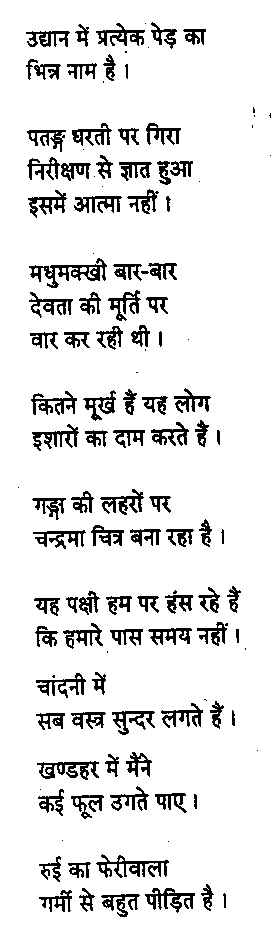 उद्यान में प्रत्येक पेड़ का
भिन्न नाम है ।
पतङ्ग धरती पर गिरा
निरीक्षण से ज्ञात हुआ
इसमें आत्मा नहीं ।
मधुमक्खी बार-बार
देवता की मूर्ति पर
वार कर रही थी ।
कितने मूर्ख हैं यह लोग
इशारों का दाम करते हैं ।
गङ्गा की लहरों पर
चन्द्रमा चित्र बना रहा है ।
यह पक्षी हम पर हंस रहे हैं
कि हमारे पास समय नहीं ।
चांदनी में
सब वस्त्र सुन्दर लगते हैं ।
खण्डहर में मैंने
कई फूल उगते पाए ।
रुई का फेरीवाला
गर्मी से बहुत पीड़ित है ।